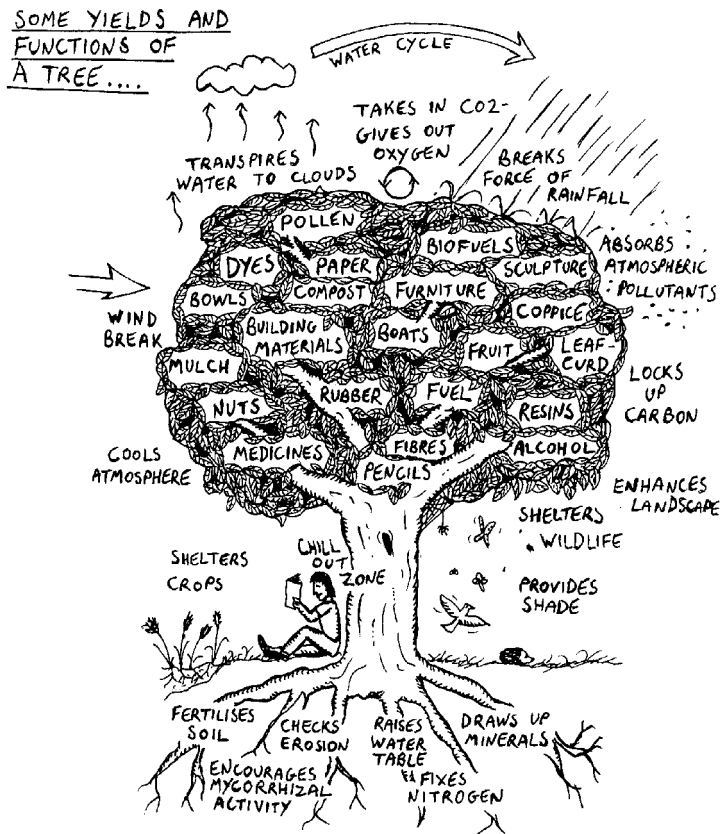 SOME YIELDS AND
FUNCTIONS OF
A TREE....
WATER CYCLE
TAKES IN CO2-
GIVES OUT
OXYGEN
TRANSPIRES
WATER TO CLOUDS
BREAKS
FORCE OF
RAINFALL
ABSORBS
ATMOSPHERIC
POLLUTANTS
WIND
BREAK
POLLEN
BIOFUELS
DYES
PAPER
SCULPTURE
BOWLS
COMPOST
FURNITURE
COPPICE
BUILDING
MATERIALS
BOATS
FRUIT
LEAF-
CURD
MULCH
RUBBER
FUEL
NUTS
RESINS
MEDICINES
FIBRES
ALCOHOL
PENCILS
LOCKS
UP
CARBON
COOLS
ATMOSPHERE
ENHANCES
LANDSCAPE
SHELTERS
WILDLIFE
SHELTERS
CROPS
CHILL
OUT
ZONE
PROVIDES
SHADE
FERTILISES
SOIL
CHECKS
EROSION
RAISES
WATER
TABLE
DRAWS UP
MINERALS
ENCOURAGES
MYCORRHIZAL
ACTIVITY
FIXES
NITROGEN